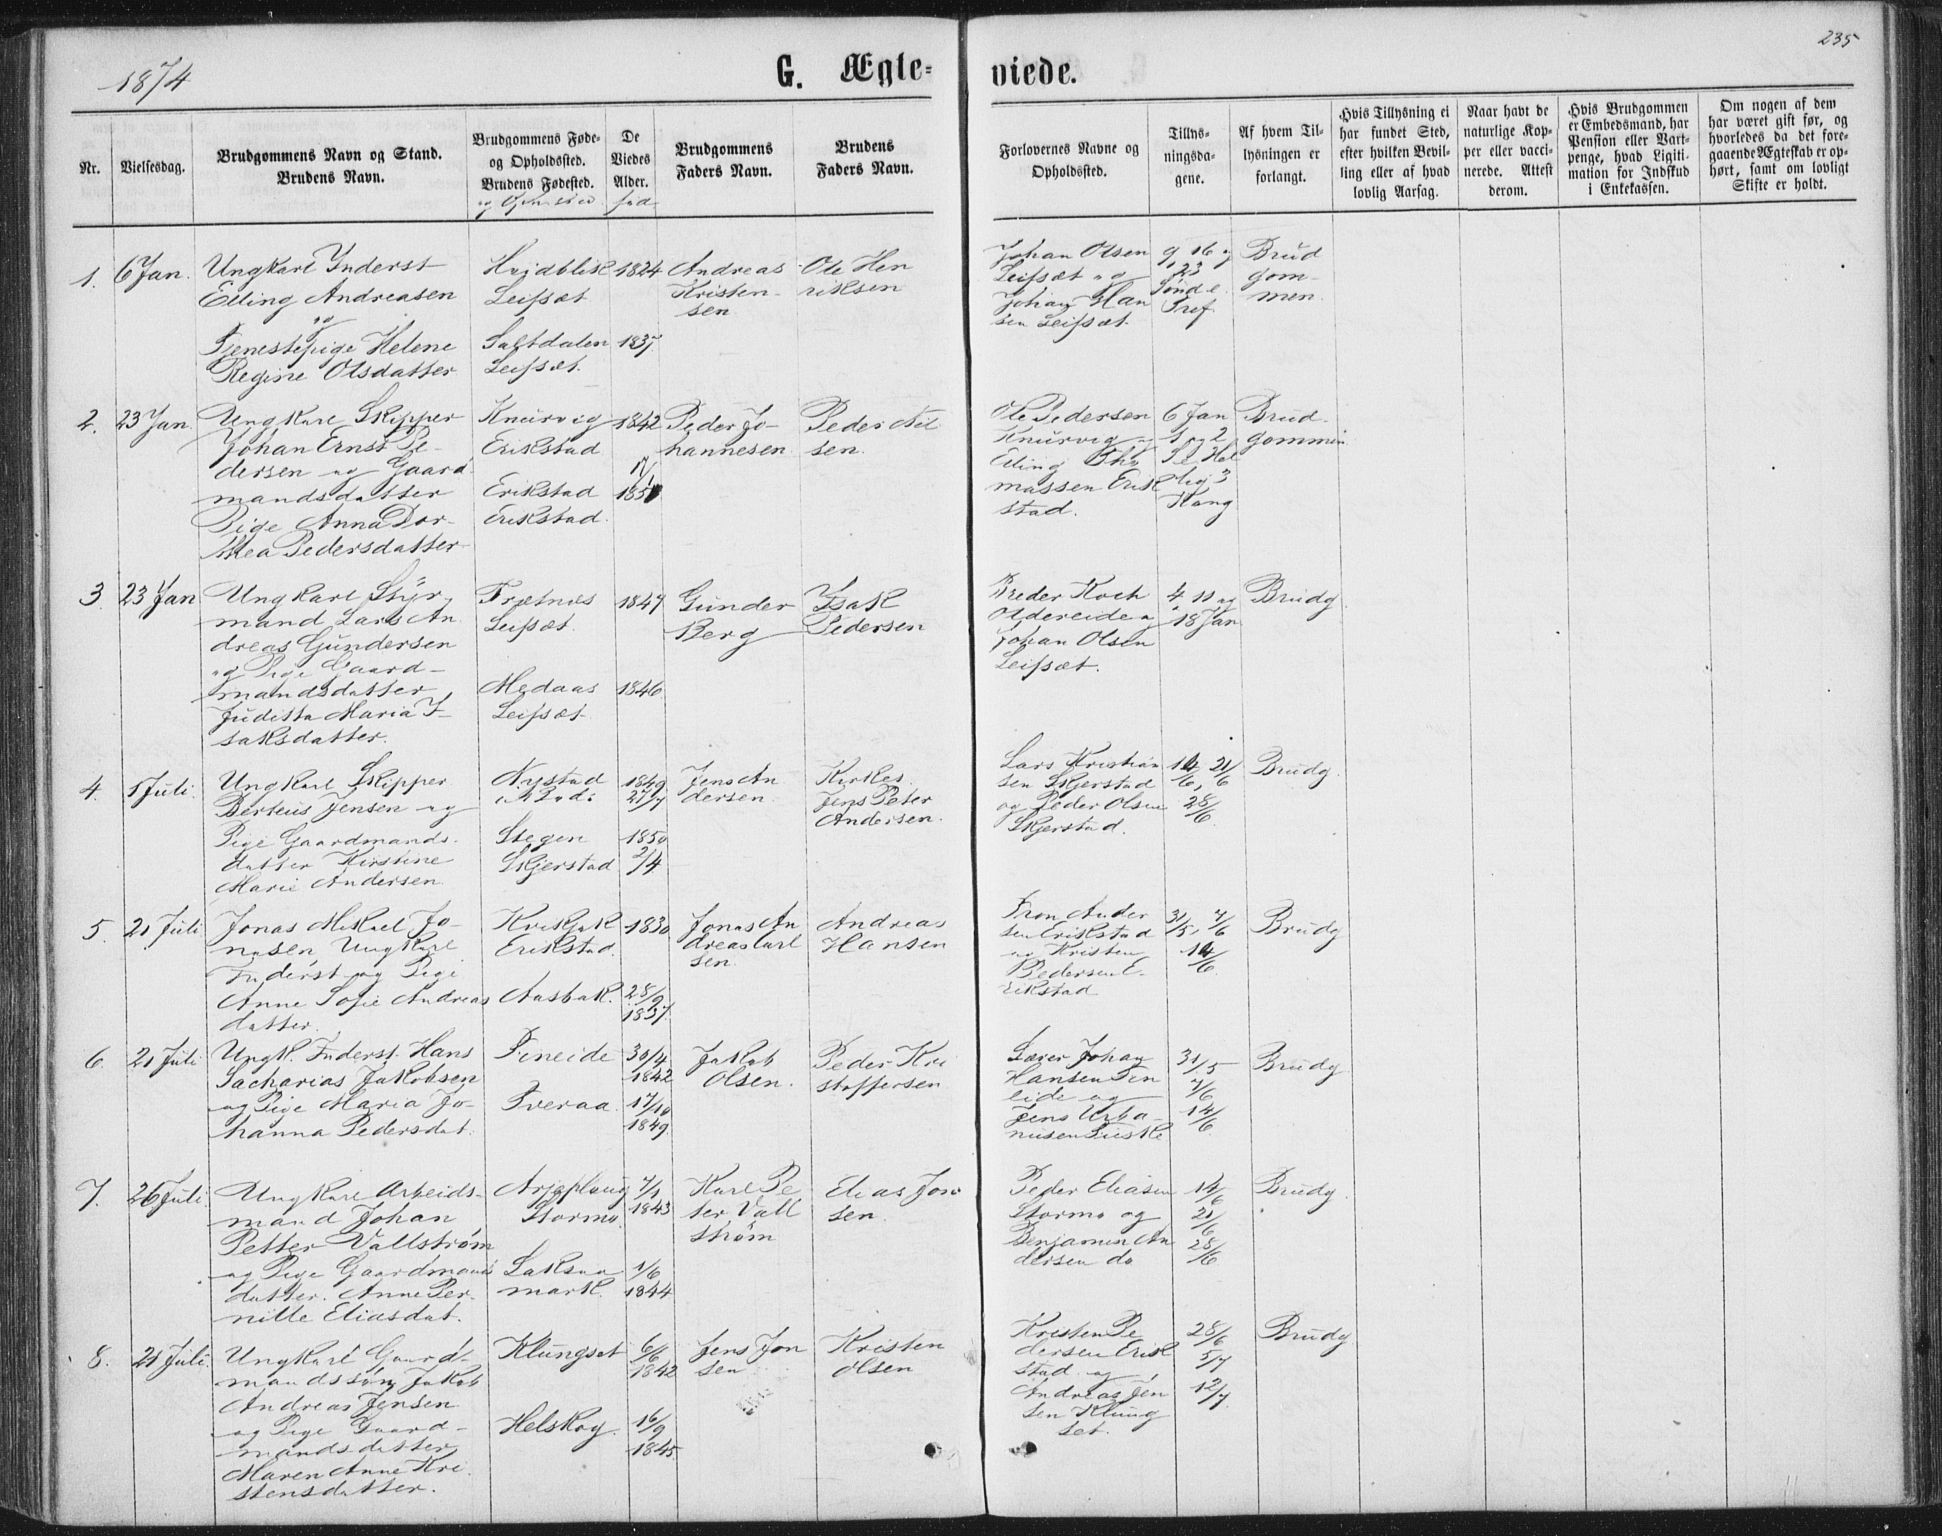 1874
G. Ægte-
viede.
235
Nr.
Vielsesdag.
Brudgommens Navn og Stand.
Brudens Navn.
Brudgommens Føde-
og Opholdssted.
Brudens Fødested.
De
Viedes
Alder.
Brudgommens
Faders Navn.
Brudens
Faders Navn.
Forlovernes Navne og
Opholdssted.
Tillys-
ningsda-
gene.
Af hvem Til-
lysningen er
forlangt.
Hvis Tillysning ei
har fundet Sted,
efter hvilken Bevil-
ling eller af hvad
lovlig Aarsag.
Naar havt de
naturlige Kop-
per eller vacci-
nerede. Attest
derom.
Hvis Brudgommen
er Embedsmand, har
Pension eller Vart-
penge, hvad Ligiti-
mation for Indskud
i Enkekassen.
Om nogen af dem
har været gift før, og
hvorledes da det fore-
gaaende Ægteskab er op-
hørt, samt om lovligt
Skifte er holdt.
1. 6 Jan.
Ungkarl Inderst
Elling Andreasen
og
Tjenestepige Helene
Regine Olsdatter
Hvidblik
Leifset
Saltdalen
Leifset.
1824
1837
Andreas
Kristen-
sen
Ole Hen
riksen
Johan Olsen
Leifset og
Johan Han
sen Leifset
9 16 og
23
Brud
gom-
men.
2. 23 Jan
Ungkarl Skipper
Johan Ernst Pe-
dersen og Gaard
mandsdatter
Pige Anna Dor-
thea Pedersdatter
Knurvig
Erikstad
Erikstad
Erikstad.
1842
Peder Jo-
hannesen
Peder Nil
sen.
Ole Pedersen
Knurvig og
Elling Tho
massen Erik
stad.
6 Jan
Brud
gommen
3 23 Jan
Ungkarl Styr
mand Lars An
dreas Gundersen
og Pige Gaard-
mandsdatter
Juditta Maria I-
saksdatter.
Frætnes
Leifset.
Medaas
Leifset
1847
1846
Gunder
Berg
Isak
Pedersen
Preder Koch
Oldereide og
Johan Olsen
Leifset.
4 11 og
18 Jan
Brudg.
4. 1 Juli
Ungkarl Skipper
Berteus Jensen og
Pige Gaardmands-
datter Kirstine
Marie Andersen
Nystad
Stegen
Skjerstad
1849
27/7
1850
2/4
Jens An
dersen.
Jens Peter
Andersen.
Lars Kristian
sen Skjerstad
og Peder Olsen
Skjerstad.
14/6, 21/6
28/6
Brudg.
5. 21 Juli
Jonas Mikael Jo-
nasen Ungkarl
Inderst og Pige
Anne Sofie Andreas
datter.
Kvikjok
Erikstad.
Aasbak.
1830
28/9
1837
Jonas An
dreas Carl
sen.
Andreas
Hansen
Tron Ander
sen Erikstad
og Kristen
Pedersen E-
rikstad
31/5, 7/6
14/6
Brudg
6. 21 Juli
Ungk. Inderst. Hans
Sacharias Jakobsen
og Pige Maria Jo-
hanna Pedersdat.
Fineide
Tveraa.
30/4
1842
17/10
1849.
Jakob
Olsen.
Peder Kri
stoffersen
Lærer Johan
Hansen Fin
eide og
Jens Urba-
nusen Fuske
31/5
7/6
14/6
Brudg
7. 26 Juli
Ungkarl Arbeids-
mand Johan
Petter Vallstrøm
og Pige Gaardmands
datter. Anne Per-
nille Eliasdat.
Arjeplaug
Stormo.
Laksaa
mark.
7/1
1843
1/6
1844
Karl Pe
ter Vall
strøm
Elias Jon
sen.
Peder Eliasen
Stormo og
Benjamin An
dersen do
14/6
21/6
28/6
Brudg.
8. 21 Juli.
Ungkarl Gaard-
mandssøn Jakob
Andreas Jensen
og Pige Gaard-
mandsdatter
Maren Anne Kri
stensdatter.
Klungset
Helskog.
6/6
1842
16/9
1845.
Jens Jon
sen
Kristen
Olsen
Kristen Pe
dersen Erik
stad og
Andreas Jen
sen Klung
set.
28/6
5/7
12/7
Brudg